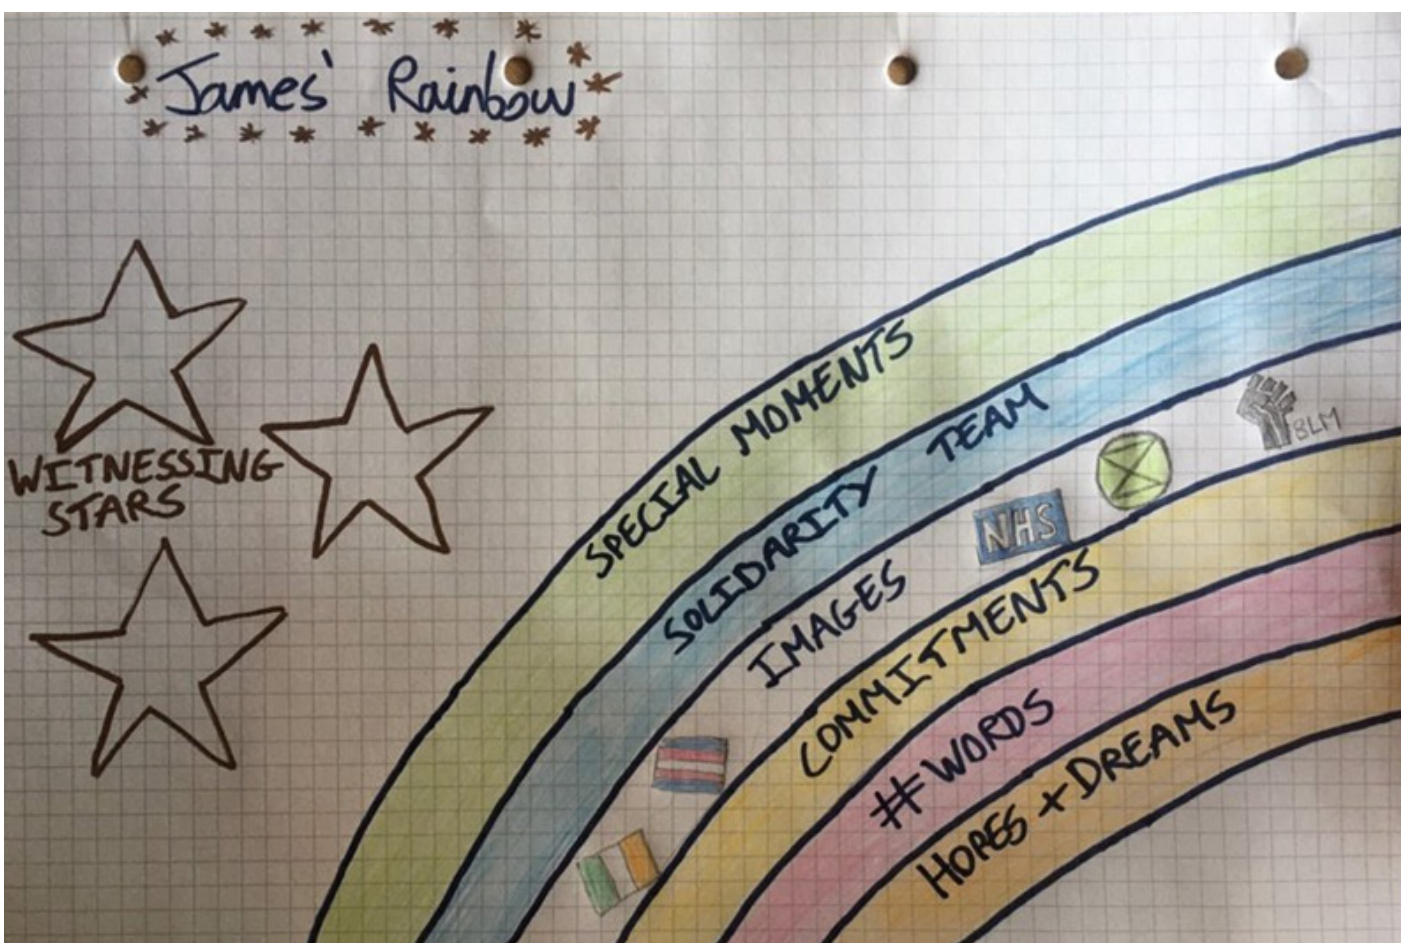 James' Rainbow
WITNESSING
STARS
SPECIAL MOMENTS
SOLIDARITY TEAM
IMAGES
NHS
BLM
COMMITMENTS
#WORDS
HOPES + DREAMS